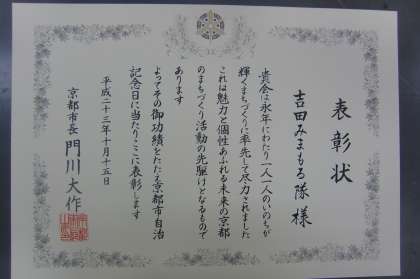 表彰状
吉田みまもる隊様
貴会は永年にわたり一人一人のいのちが
輝くまちづくりに率先して尽力されました
これは魅力と個性あふれる未来の京都
のまちづくり活動の先駆けとなるもので
あります
よってその御功績をたたえ京都市自治
記念日に当たりここに表彰します
平成二十三年十月十五日
京都市長 門川大作